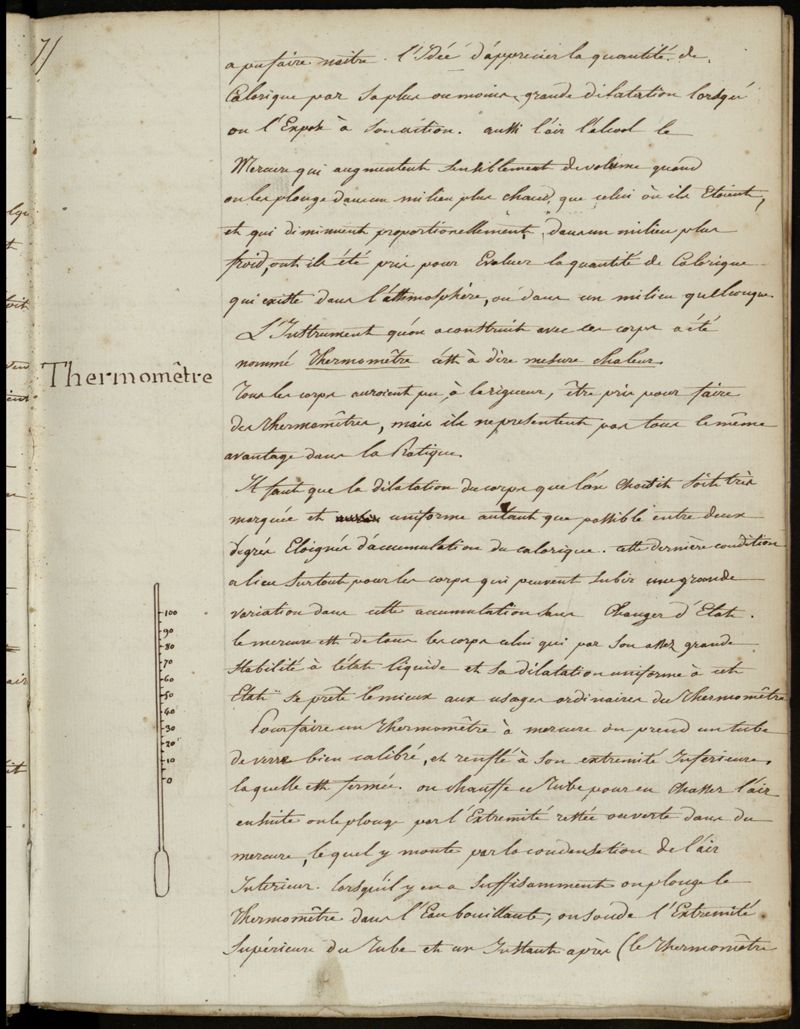 7/
a pu faire naitre l'Idée d'apprecier la quantité de
Calorique par sa plus ou moins grande dilatation lorsqu'
on l'Expose à son action. aussi l'air l'alcool le
Mercure qui augmentent sensiblement de volume quand
on les plonge dans un milieu plus chaud, que celui où ils Etoient,
et qui diminuent proportionellement dans un milieu plus
froid, ont ils été pris pour Evaluer la quantité de Calorique
qui existe dans l'athmosphère, ou dans un milieu quelconque.
L'Instrument qu'on a construit avec ces corps a été
nommé thermomêtre c'est à dire mesure chaleur.
Thermomêtre
Tous les corps auroient pu, à la rigueur, être pris pour faire
des thermomêtres, mais ils ne presentent pas tous le même
avantage dans la Pratique.
Il faut que la dilatation du corps que l'on choisit soit très
marquée et uniforme autant que possible entre deux
degrés Eloignés d'accumulation du calorique. cette dernière condition
a lieu surtout pour les corps qui peuvent subir une grande
variation dans cette accumulation sans changer d'Etat.
le mercure est de tous les corps celui qui par son assez grande
stabilité à l'état liquide et sa dilatation uniforme à cet
Etat se prete le mieux aux usages ordinaires du thermomêtre
Pour faire un thermomêtre à mercure on prend un tube
de verre bien calibré, et renflé à son extremité Inferieure,
laquelle est fermée. on chauffe ce Tube pour en chasser l'air
ensuite on le plonge par l'Extremité restée ouverte dans du
mercure, lequel y monte par la condensation de l'air
Interieur. lorsqu'il y en a suffisamment on plonge le
thermomêtre dans l'Eau bouillante, on soude l'Extremité
supérieure du Tube et un Instant après (le thermomêtre
100
90
80
70
60
50
40
30
20
10
0